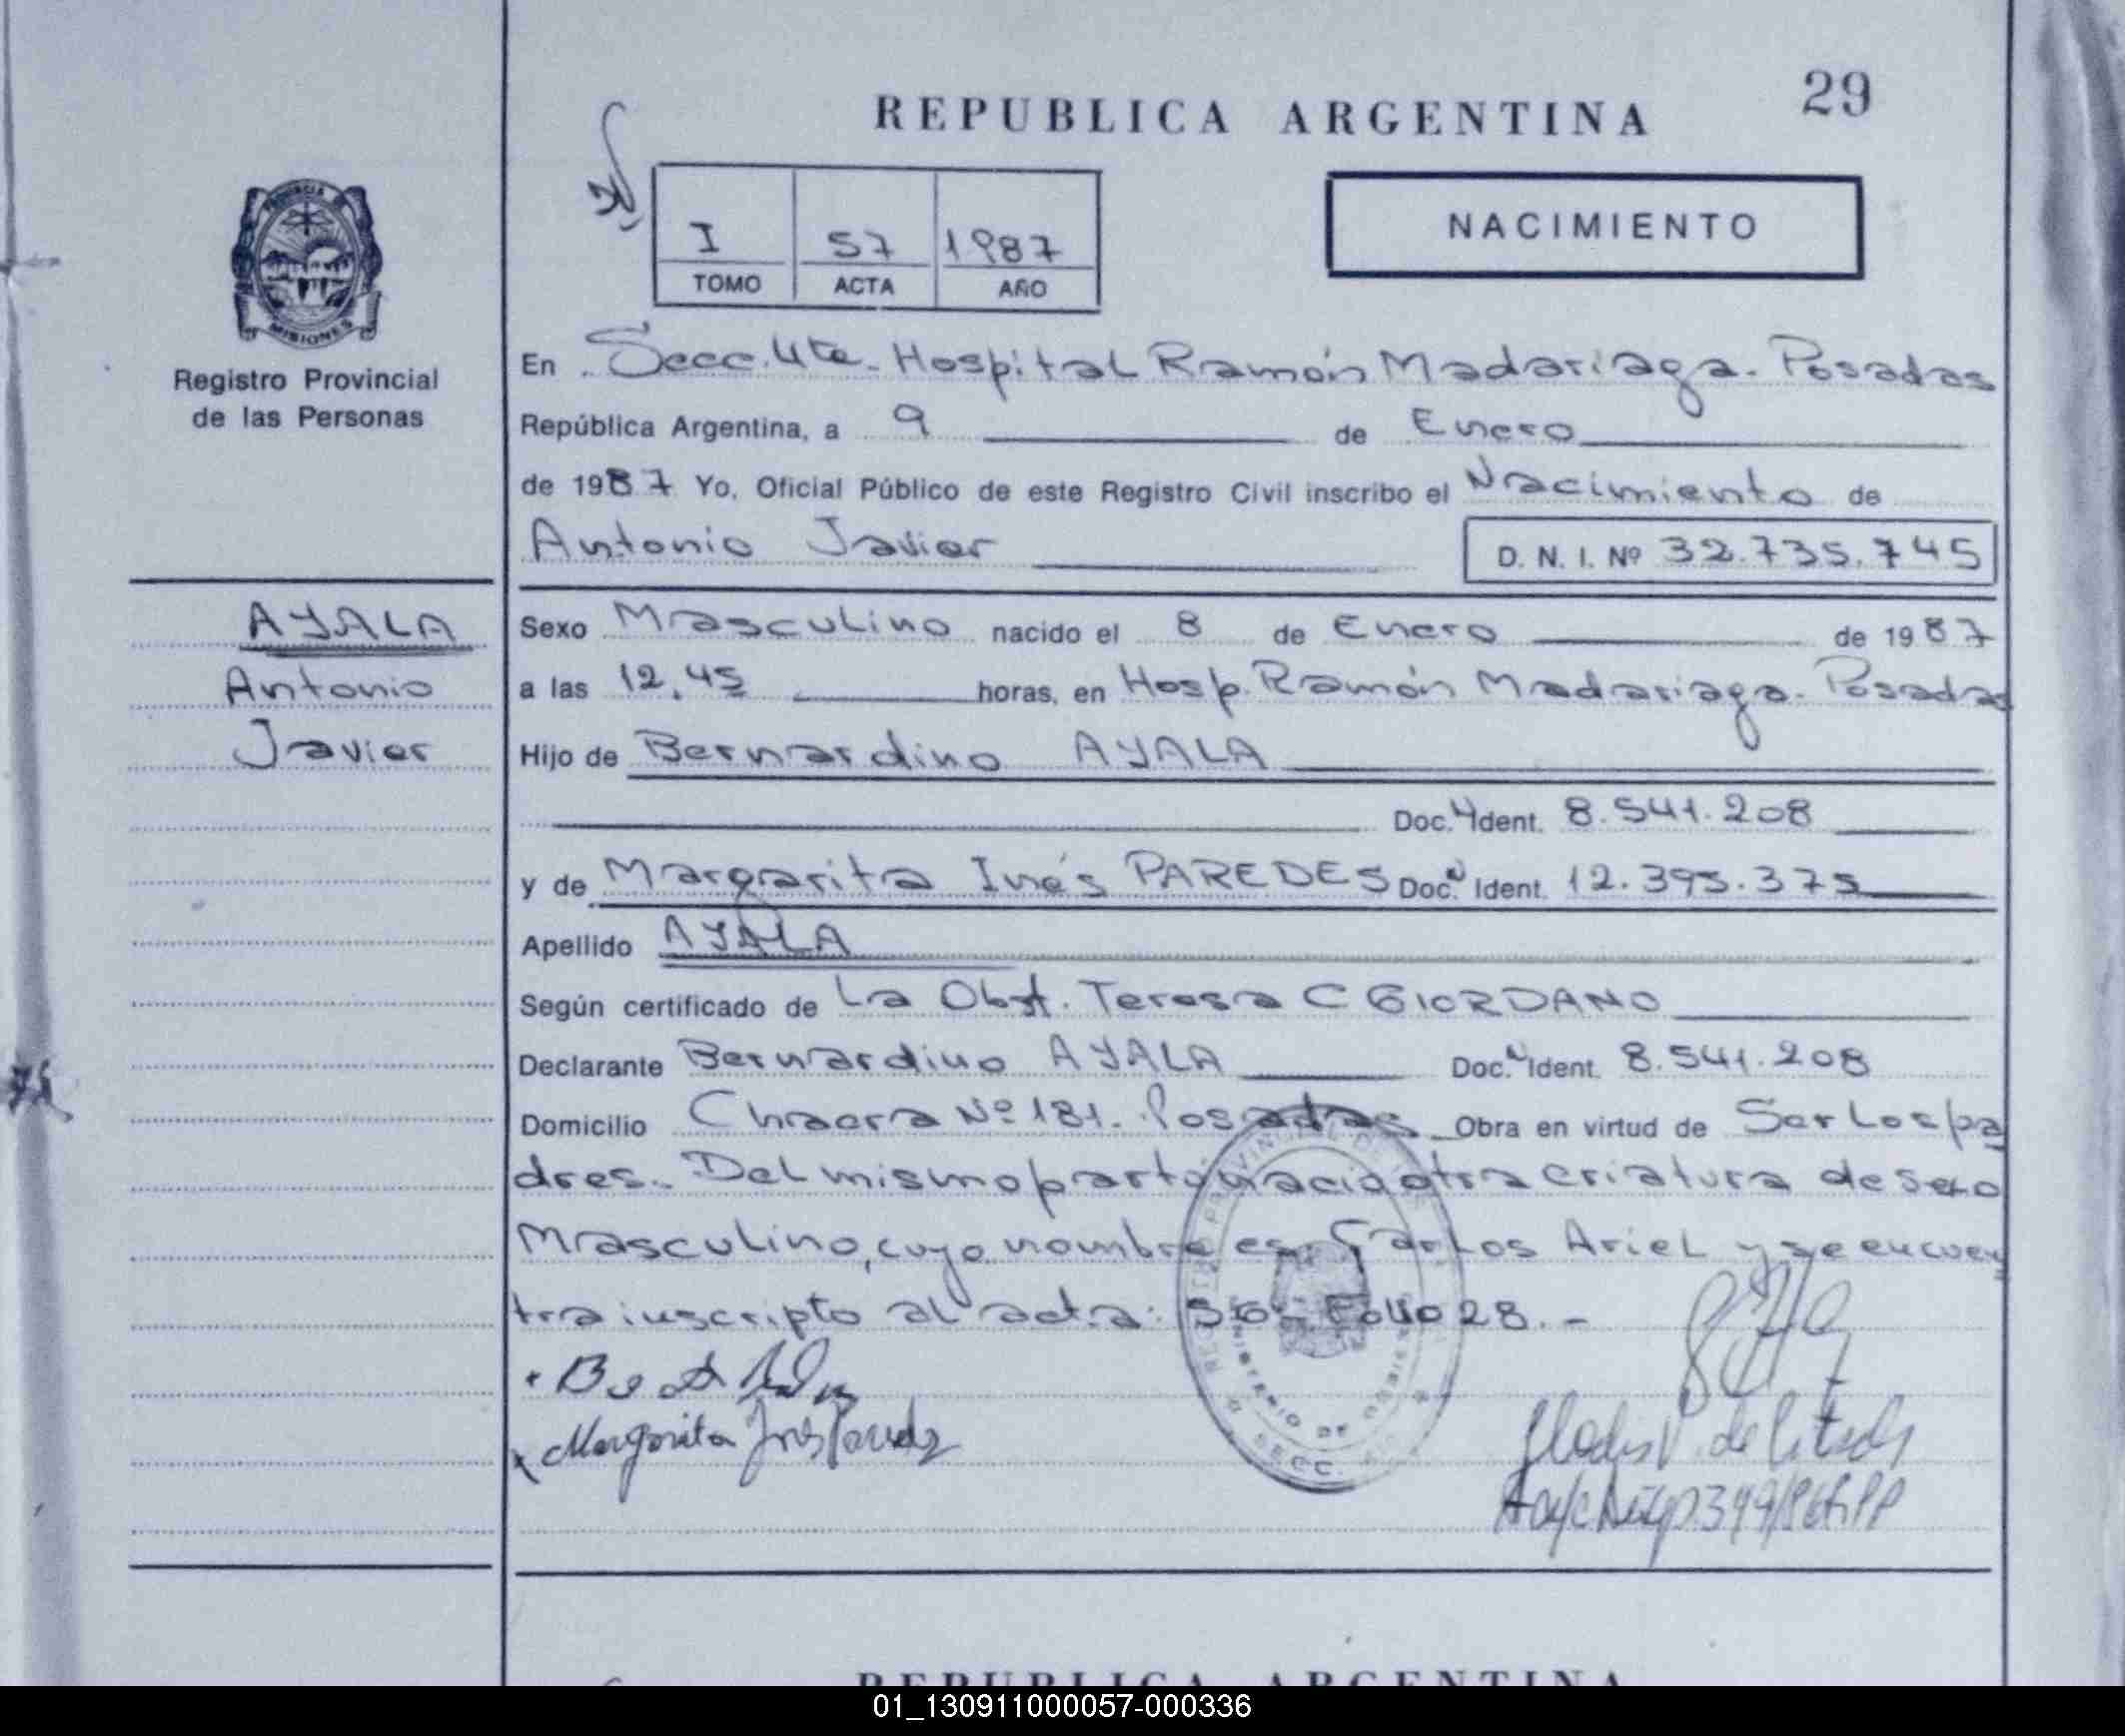 29
REPUBLICA ARGENTINA
NACIMIENTO
I 57 1987
TOMO ACTA AÑO
PROVINCIA
MISIONES
Registro Provincial
de las Personas
En Secc. 4ta. Hospital Ramón Madariaga. Posadas
República Argentina, a 9 de Enero
de 1987 Yo, Oficial Público de este Registro Civil inscribo el Nacimiento de
Antonio Javier D. N. I. Nº 32.735.745
AYALA
Antonio
Javier
Sexo Masculino nacido el 8 de Enero de 1987
a las 12,45 horas, en Hosp. Ramón Madariaga. Posadas
Hijo de Bernardino AYALA
Doc. Ident. 8.541.208
y de Margarita Inés PAREDES Doc. Ident. 12.395.375
Apellido AYALA
Según certificado de La Obst. Teresa C GIORDANO
Declarante Bernardino AYALA Doc. Ident. 8.541.208
Domicilio Chacra Nº 181. Posadas Obra en virtud de Ser Los pa
dres. Del mismo parto nacio otra criatura de sexo
Masculino, cuyo nombre es Carlos Ariel y se encuen
tra inscripto al acta: 56 - Folio 28. -
Margarita Inés Paredes
REPUBLICA ARGENTINA
01_130911000057-000336